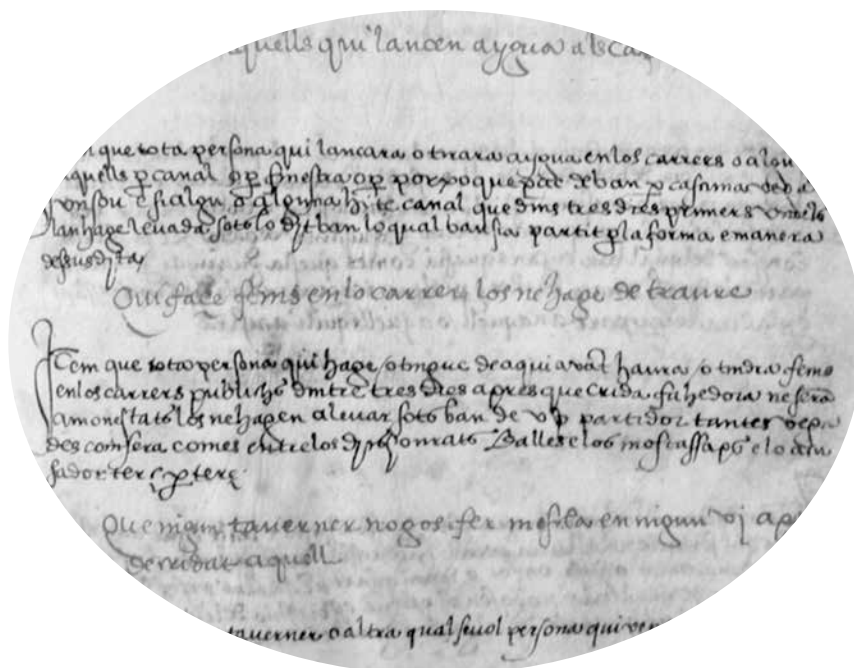 quells qui lancen aygua als car
que tota persona qui lancara o tirara aygua en los carrers o algu
aquells p canal o p finestra o p porxo que pac de ban p casamar
o algun o alguna hi te canal que dins tres dies primers vinents
lan hage levada sots lo dit ban lo qual ban sia partit p la forma e manera
desus dita
Qui face fems en lo carrer los ne hage de traure
Item que tota persona qui hage o tingue de aqui avat haura o tindra fems
en los carrers publichs dintre tres dies apres que crida feta hedora ne sera
amonestats los ne hagen a levar sots ban de v partidor tantes vega
des com sera comes entre los dits honrats Balle e los mostassaps e lo acu
sador ter p terç
Que nigun taverner no gos fer mescla en nigun vi ap
de cridat aquell
taverner o altra qual sevol persona qui ven